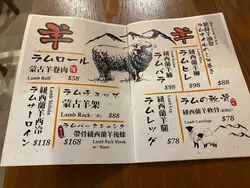 羊
ラムロール
蒙古羊卷肉
Lamb Roll
ラムチョップ
蒙古羊架
Lamb Rack
$88
ラムサーロイン
紐西蘭羊西冷
$118
ラムバックシャンク
帶骨紐西蘭羊後腱
$168
Lamb Back Shank
w/ Bone
羊
ラムバラ
紐西蘭羊腩
$98
ラムヒレ
紐西蘭羊柳
$98
$88
ラムレッグ
紐西蘭羊腿
$78
ラムの軟骨
紐西蘭羊軟骨
Lamb Cartilage
$78